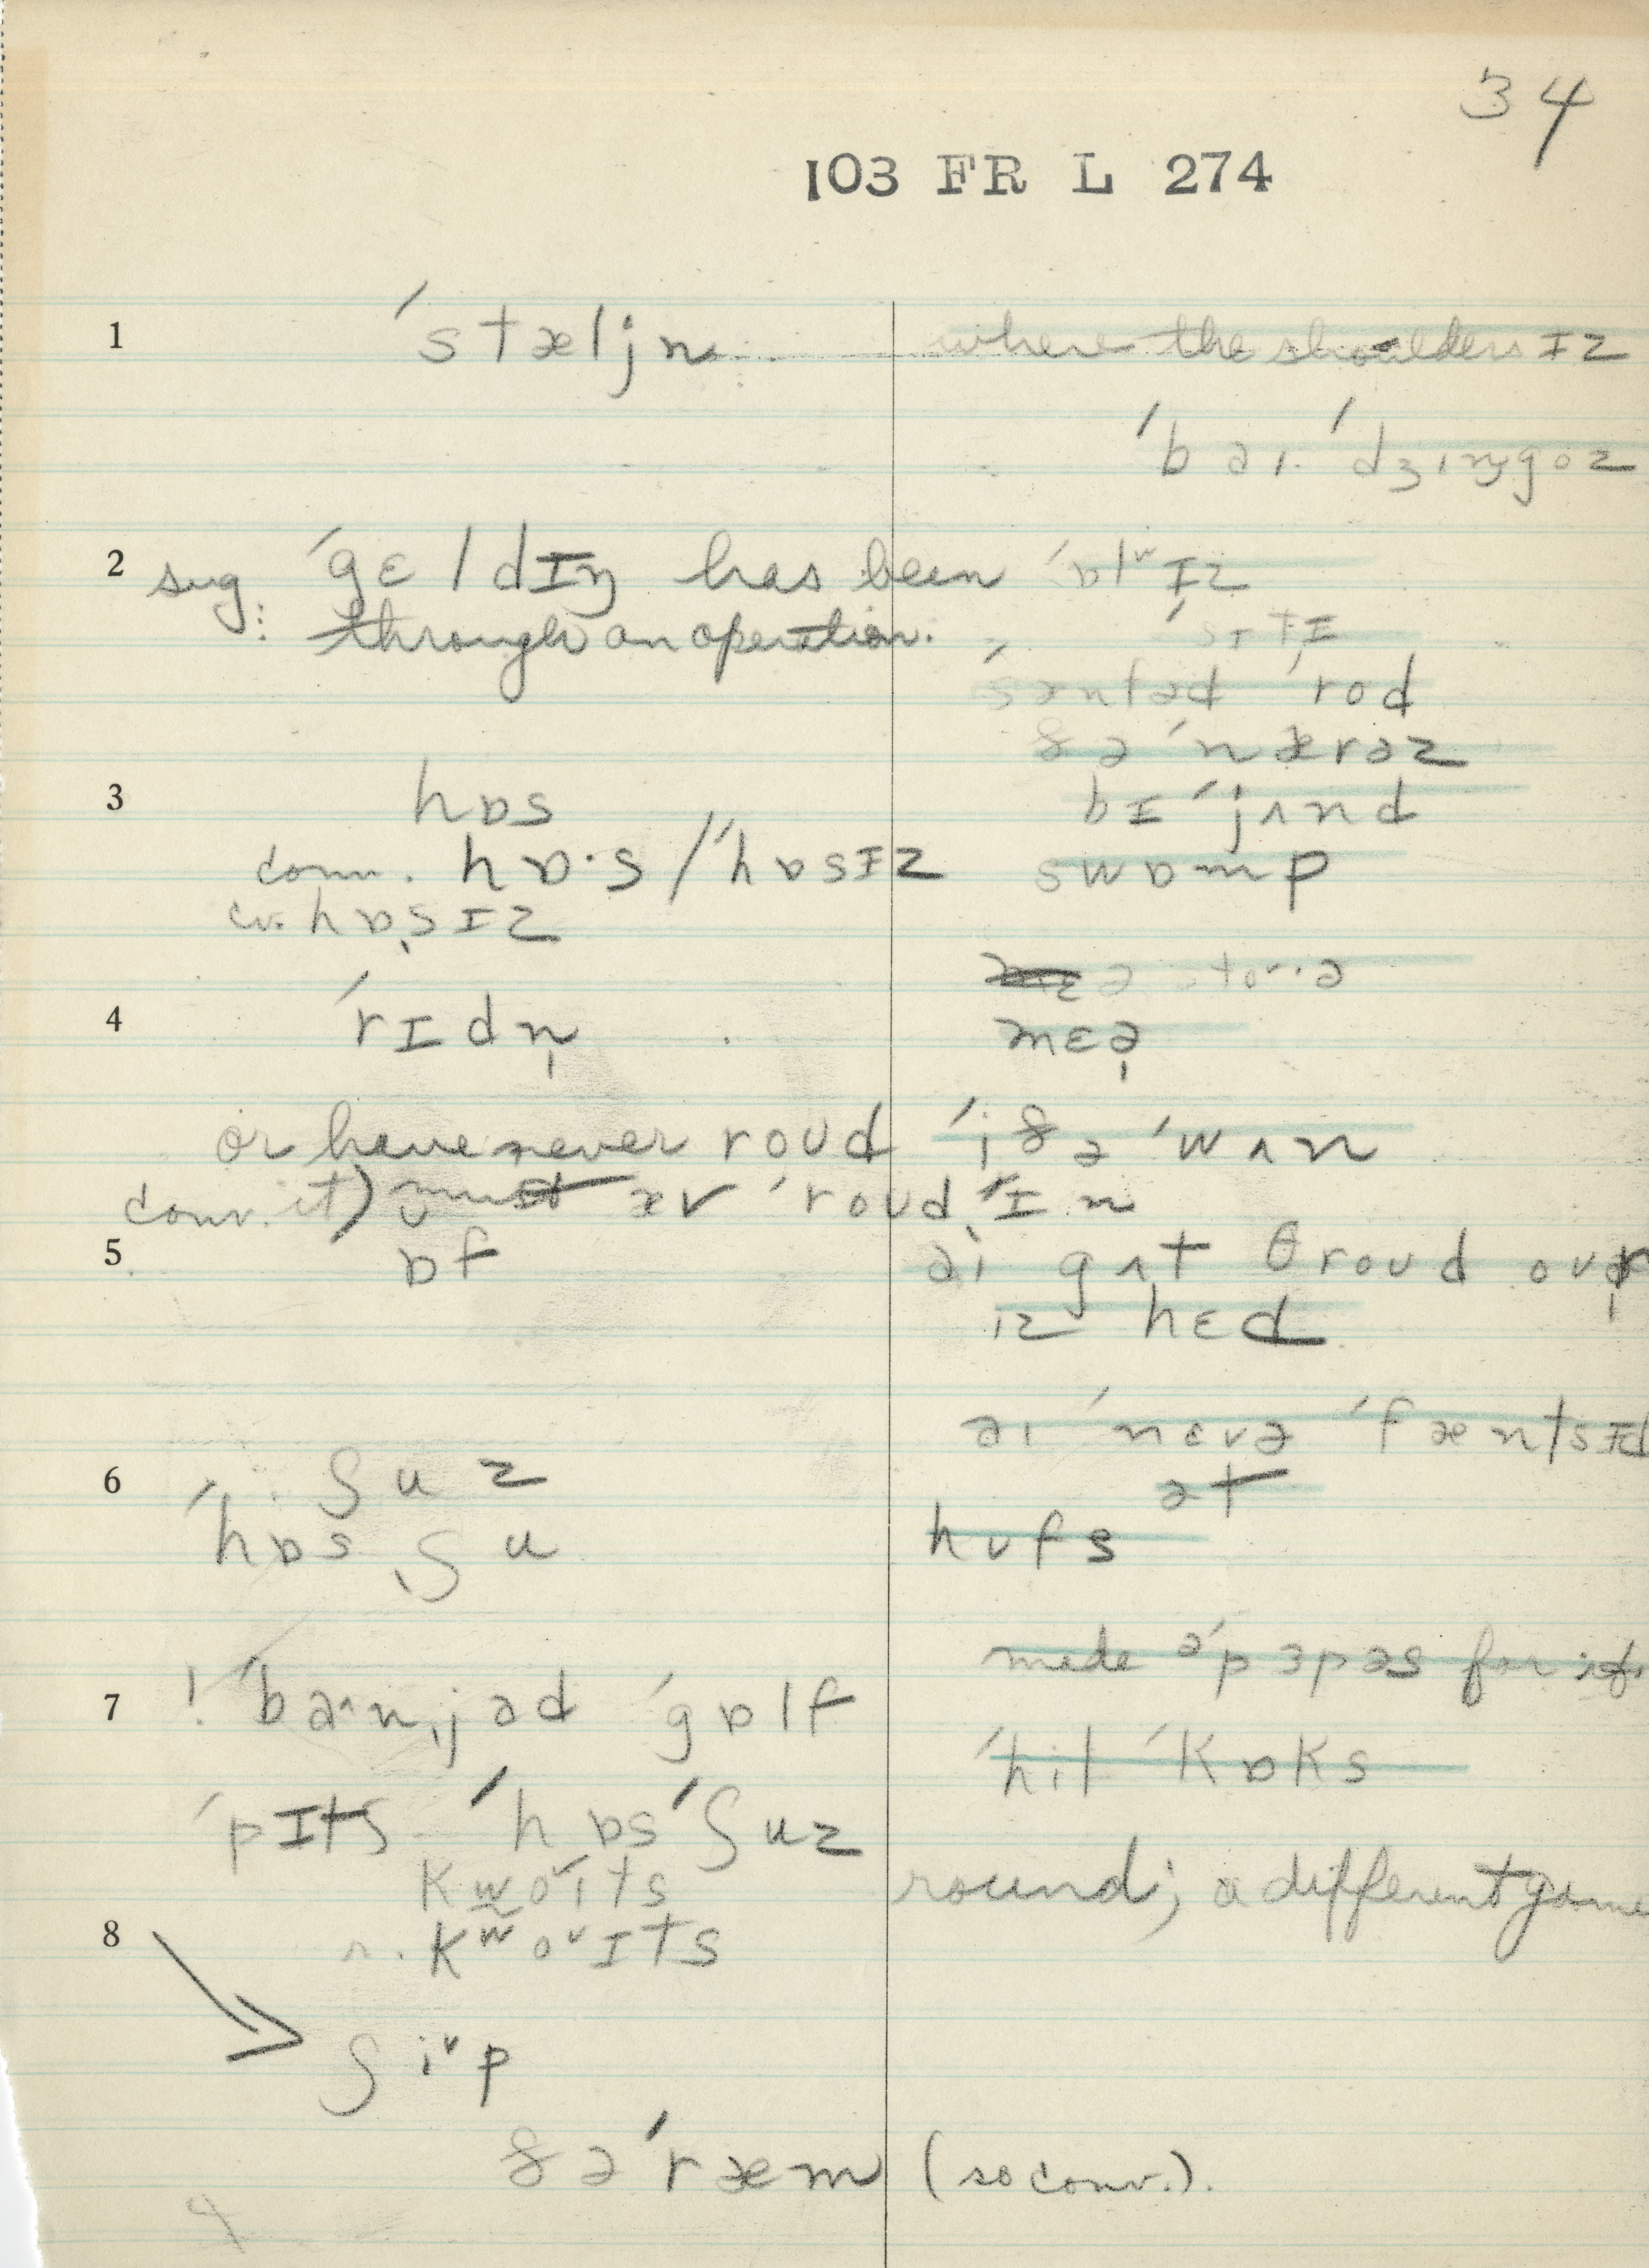 34
103 FR L 274
1 ˈstæljn where the shoulders ɪz
ˈbaɪ ˈdʒɪŋgoz
2 sug: ˈgɛldɪŋ has been ˈɒlʷɪz
through an operation.
ˈrod
ðəˈnærəz
3 hɒs bɪˈjʌnd
conv. hɒ·s / ˈhɒsɪz swɒmp
cv. hɒsɪz
4 ˈrɪdn̩ mɛə̯
or have never roud ˈiðə ˈwʌn
conv. it) must əv ˈroud ˈɪn
5 ɒf aɪ gʌt θroud
ɪz hɛd
aɪ ˈnɛvə ˈfæntsɪd
6 ʃuz ət
ˈhɒs ʃu hʊfs
made əˈpɜpəs for
7 ! ˈbaˆn,jəd ˈgɒlf
ˈhil ˈkɒks
ˈpɪtʃ ˈhɒsˈʃuz
kwoˇɪts round; a different game
8 r. kʷoˇɪts
ʃiˇp
ðəˈræm (so conv.).